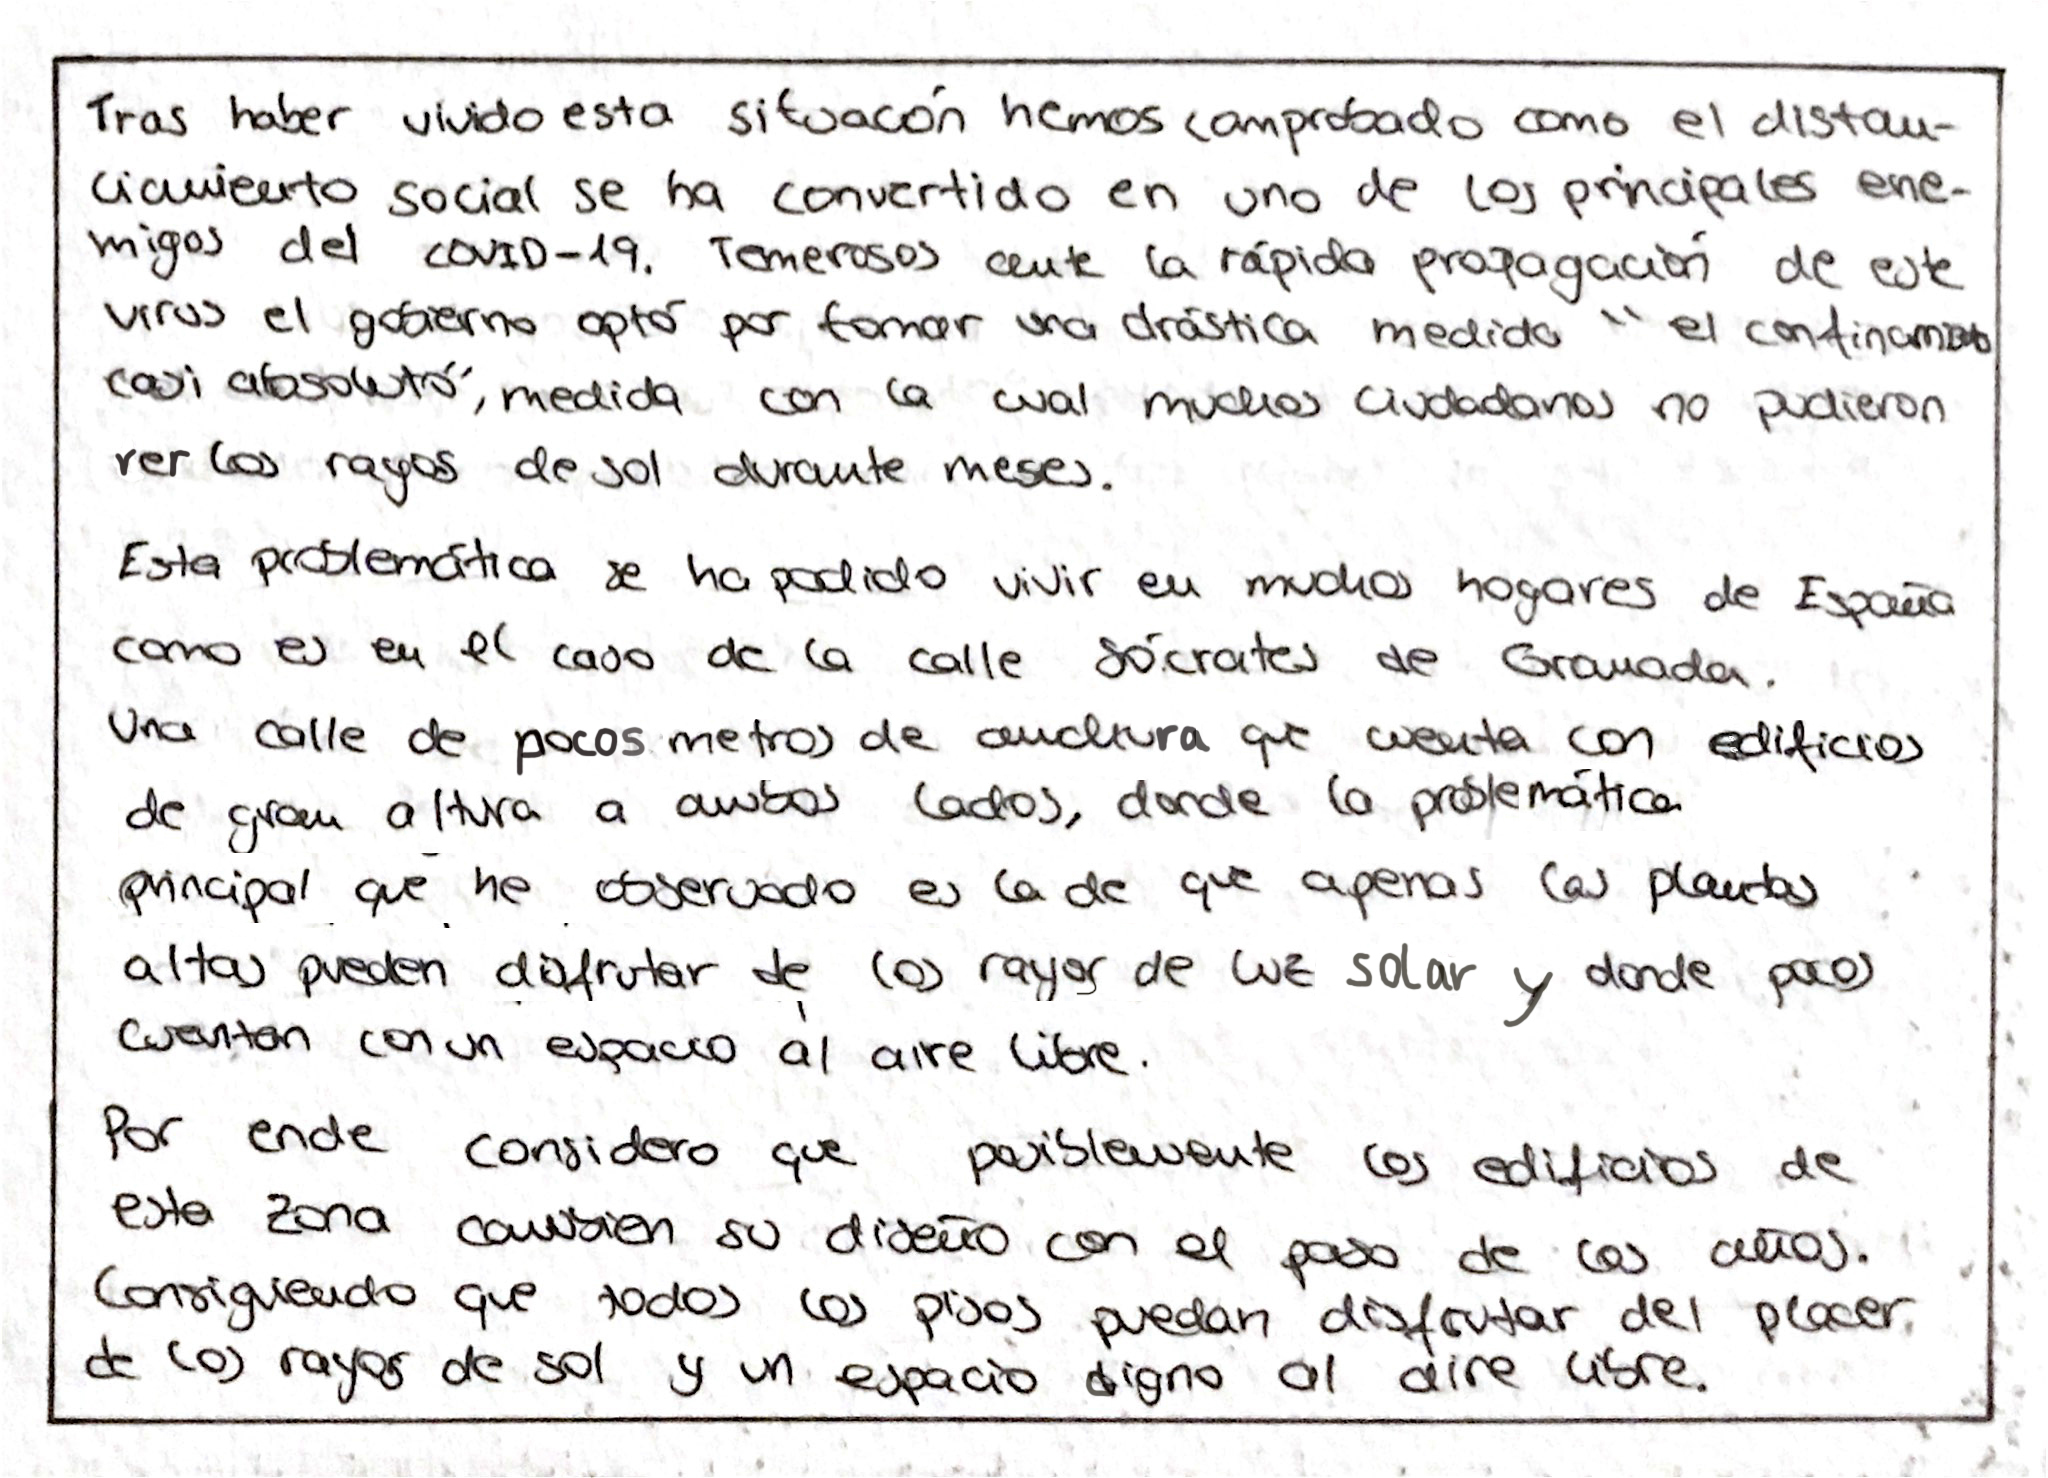 Tras haber vivido esta situacón hemos comprobado como el distan-
ciamiento social se ha convertido en uno de los principales ene-
migos del COVID-19. Temerosos ante la rápida propagación de este
virus el gobierno optó por tomar una drástica medida "el confinamiento
casi absoluto", medida con la cual muchos ciudadanos no pudieron
ver los rayos de sol durante meses.
Esta problemática se ha podido vivir en muchos hogares de España
como es en el caso de la calle Sócrates de Granada.
Una calle de pocos metros de anchura que cuenta con edificios
de gran altura a ambos lados, donde la problemática
principal que he observado es la de que apenas las plantas
altas pueden disfrutar de los rayos de luz solar y donde pocos
cuentan con un espacio al aire libre.
Por ende considero que posiblemente los edificios de
esta zona cambien su diseño con el paso de los años.
Consiguiendo que todos los pisos puedan disfrutar del placer
de los rayos de sol y un espacio digno al aire libre.